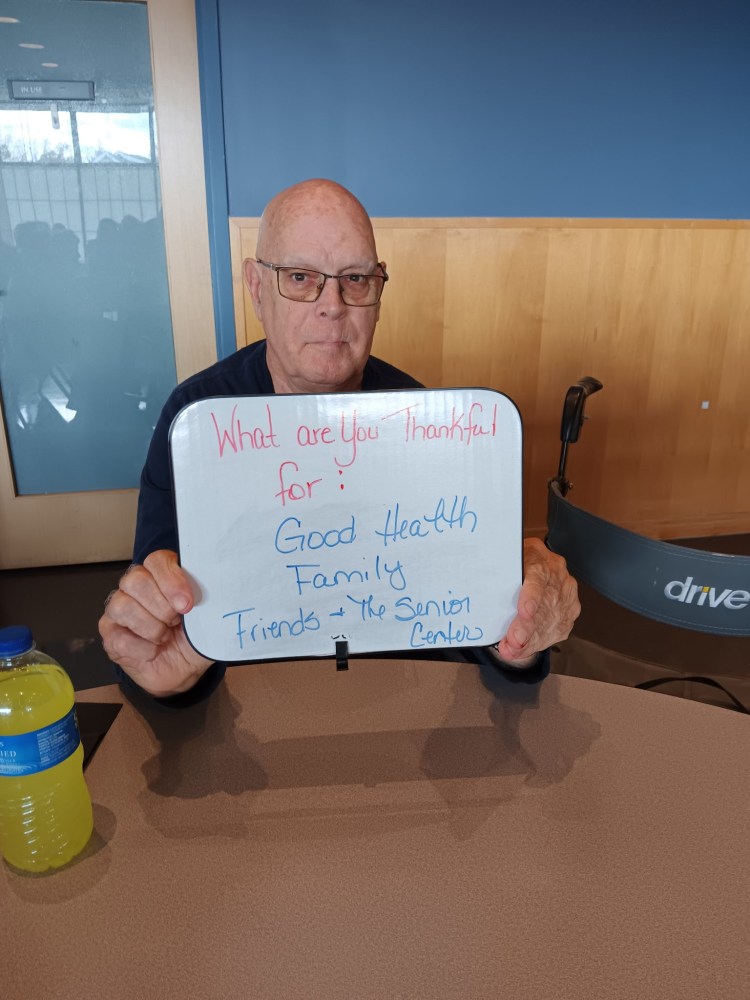 IN USE
What are you Thankful
for:
Good Health
Family
Friends + The Senior
Center
drive